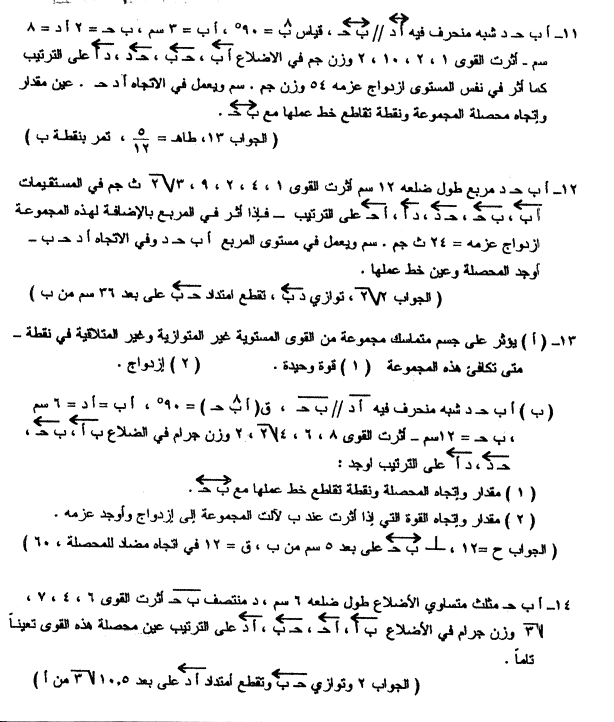 ١١ـ أ ب حـ د شبه منحرف فيه أد // ب حـ ، قياس ب = ٩٠° ، أب = ٣ سم ، ب حـ = ٢ أد = ٨
سم ـ أثرت القوى ١ ، ٢ ، ١٠ ، ٢ وزن جم في الاضلاع أب ، حـ ب ، حـ د ، د أ على الترتيب
كما أثر في نفس المستوى ازدواج عزمه ٥٤ وزن جم . سم ويعمل في الاتجاه أ د حـ . عين مقدار
وإتجاه محصلة المجموعة ونقطة تقاطع خط عملها مع ب حـ .
( الجواب ١٣ ، طاهـ = ٥/١٢ ، تمر بنقطة ب )
١٢ـ أ ب حـ د مربع طول ضلعه ١٢ سم أثرت القوى ١ ، ٤ ، ٢ ، ٩ ، ٣√٢ ث جم في المستقيمات
أب ، ب حـ ، حـ د ، د أ ، أ حـ على الترتيب ـ فإذا أثر في المربع بالإضافة لهذه المجموعة
ازدواج عزمه = ٢٤ ث جم . سم ويعمل في مستوى المربع أ ب حـ د وفي الاتجاه أ د حـ ب ـ
أوجد المحصلة وعين خط عملها .
( الجواب ٢√٢ ، توازي د ب ، تقطع امتداد حـ ب على بعد ٣٦ سم من ب )
١٣ـ ( أ ) يؤثر على جسم متماسك مجموعة من القوى المستوية غير المتوازية وغير المتلاقية في نقطة ـ
متى تكافئ هذه المجموعة ( ١ ) قوة وحيدة . ( ٢ ) إزدواج .
( ب ) أ ب حـ د شبه منحرف فيه أد // ب حـ ، ق( أ ب حـ ) = ٩٠° ، أب = أد = ٦ سم
، ب حـ = ١٢سم ـ أثرت القوى ٨ ، ٦ ، ٤√٢ ، ٢ وزن جرام في الضلاع ب أ ، ب حـ ،
حـ د ، د أ على الترتيب اوجد :
( ١ ) مقدار وإتجاه المحصلة ونقطة تقاطع خط عملها مع ب حـ .
( ٢ ) مقدار وإتجاه القوة التي إذا أثرت عند ب لآلت المجموعة إلى إزدواج وأوجد عزمه .
( الجواب ح = ١٢ ، ⊥ ب حـ على بعد ٥ سم من ب ، ق = ١٢ في اتجاه مضاد للمحصلة ، ٦٠ )
١٤ـ أ ب حـ مثلث متساوي الأضلاع طول ضلعه ٦ سم ، د منتصف ب حـ أثرت القوى ٦ ، ٤ ، ٧ ،
√٣ وزن جرام في الأضلاع ب أ ، أ حـ ، حـ ب ، أد على الترتيب عين محصلة هذه القوى تعيناً
تاماً .
( الجواب ٢ وتوازي حـ ب وتقطع أمتداد أ د على بعد ١٠,٥√٣ من أ )